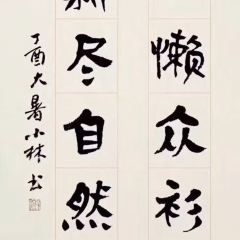 懒众衫
尽自然
丁酉大暑小林书